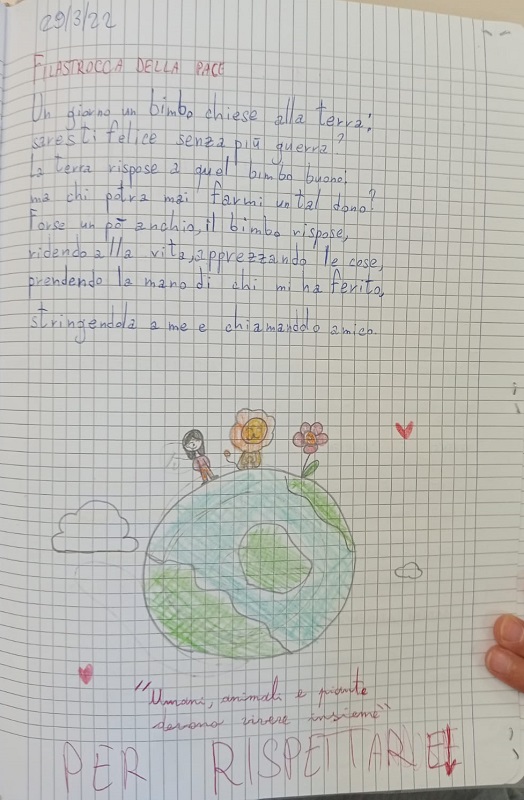 29/3/22
FILASTROCCA DELLA PACE
Un giorno un bimbo chiese alla terra;
saresti felice senza più guerra?
la terra rispose a quel bimbo buono;
ma chi potrà mai farmi un tal dono?
Forse un pò anch'io, il bimbo rispose,
ridendo alla vita, apprezzando le cose,
prendendo la mano di chi mi ha ferito,
stringendola a me e chiamanddo amico.
"Umani, animali e piante
devono vivere insieme"
PER RISPETTARE